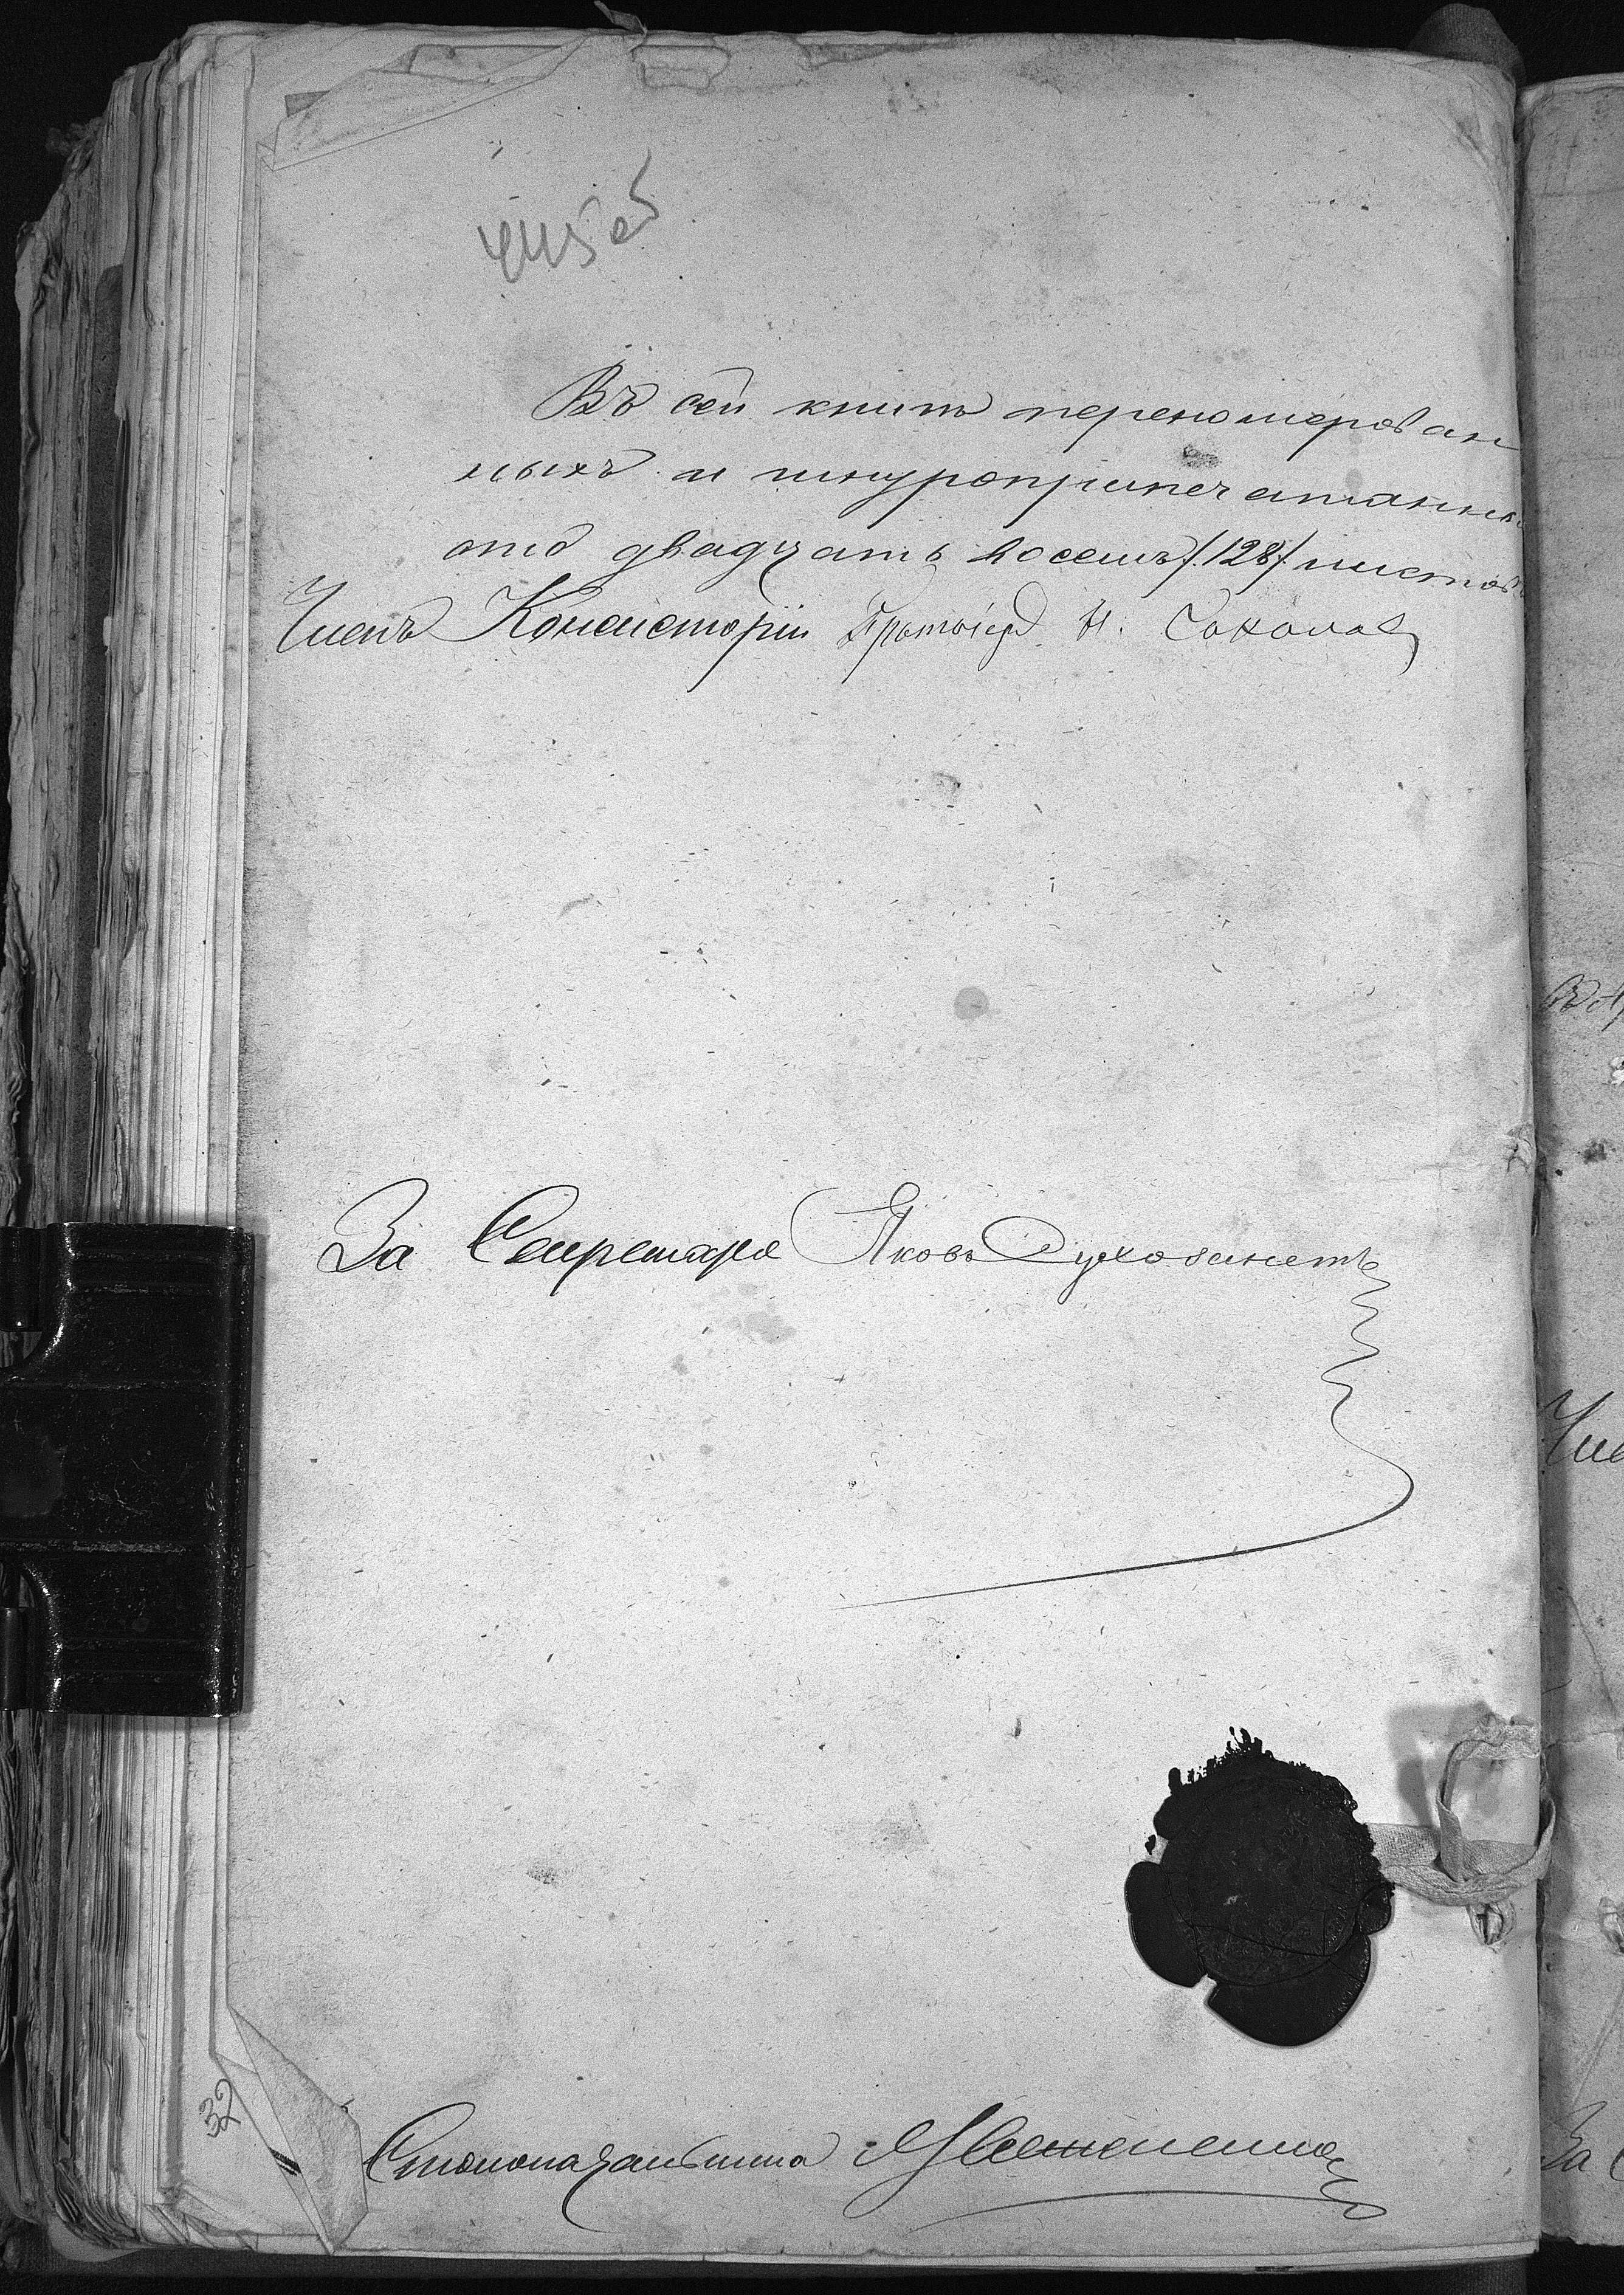 Въ сей книгѣ перенумерован
ныхъ и шнуроприпечатанны
сто двадцать восемь /128/ листов
Членъ Консисторіи Протоіерей Н. Соколов
За Секретаря Яковъ
Столоначальника
32